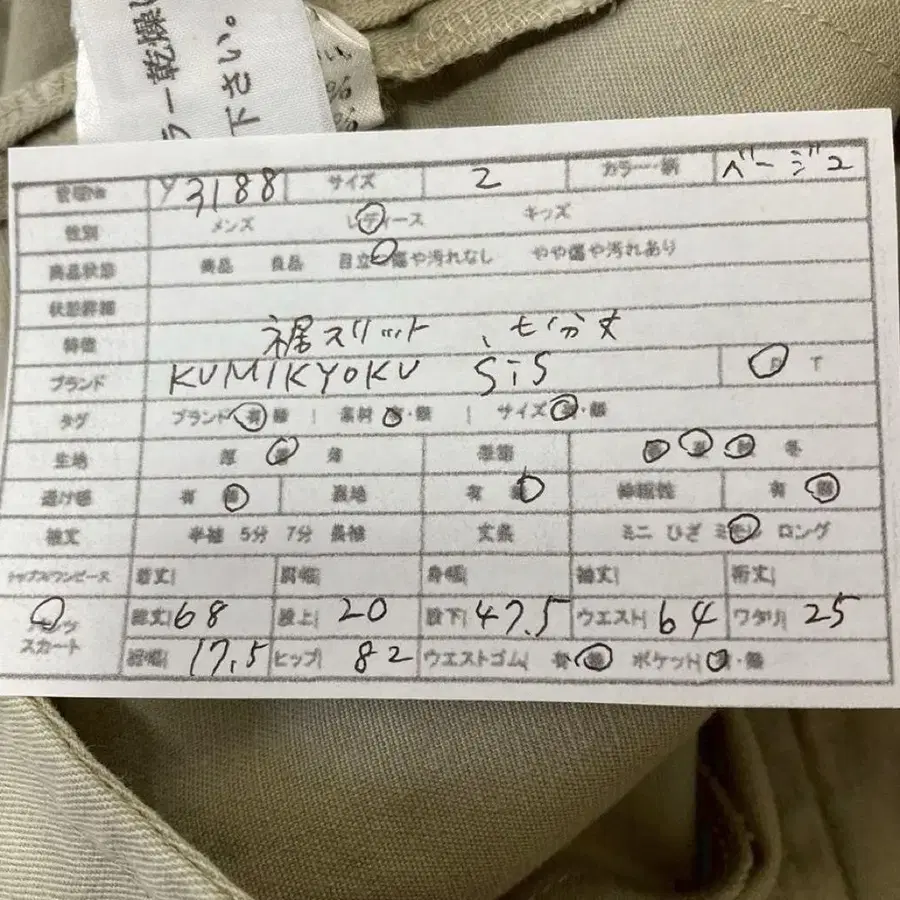 ラー乾燥は
下さい。
管理No Y3188 サイズ 2 カラー・柄 ベージュ
性別 メンズ レディース キッズ
商品状態 美品 良品 目立つ傷や汚れなし やや傷や汚れあり
状態詳細
特徴 裾スリット、七分丈
ブランド KUMIKYOKU SiS T
タグ ブランド 有・無 | 素材 有・無 | サイズ 有・無
生地 厚 薄 季節 冬
透け感 有 裏地 有 伸縮性 有
袖丈 半袖 5分 7分 長袖 丈感 ミニ ひざ ミモレ ロング
トップス/ワンピース 着丈 肩幅 身幅 袖丈 裄丈
パンツ スカート 総丈 68 股上 20 股下 47.5 ウエスト 64 ワタリ 25
裾幅 17.5 ヒップ 82 ウエストゴム 有 ポケット ・無